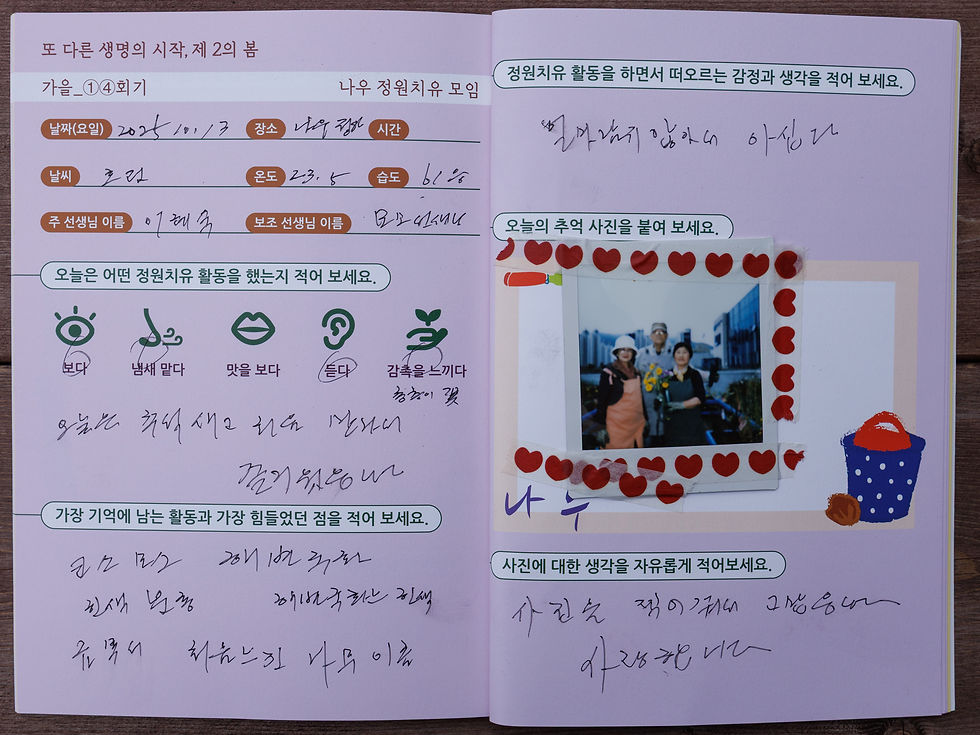 또 다른 생명의 시작, 제 2의 봄
가을_①④회기 나우 정원치유 모임
날짜(요일) 2025 10. 13 장소 나우 시간
날씨 흐림 온도 23.5 습도 61
주 선생님 이름 이혜숙 보조 선생님 이름
오늘은 어떤 정원치유 활동을 했는지 적어 보세요.
보다 냄새 맡다 맛을 보다 듣다 감촉을 느끼다
꽃
오늘은
가장 기억에 남는 활동과 가장 힘들었던 점을 적어 보세요.
코스모스 해변국화
흰색 해변국화는 흰색
처음 나무 이름
정원치유 활동을 하면서 떠오르는 감정과 생각을 적어 보세요.
얼마 남지 않아서 아쉽다
오늘의 추억 사진을 붙여 보세요.
나우
사진에 대한 생각을 자유롭게 적어보세요.
사진을
사랑합니다